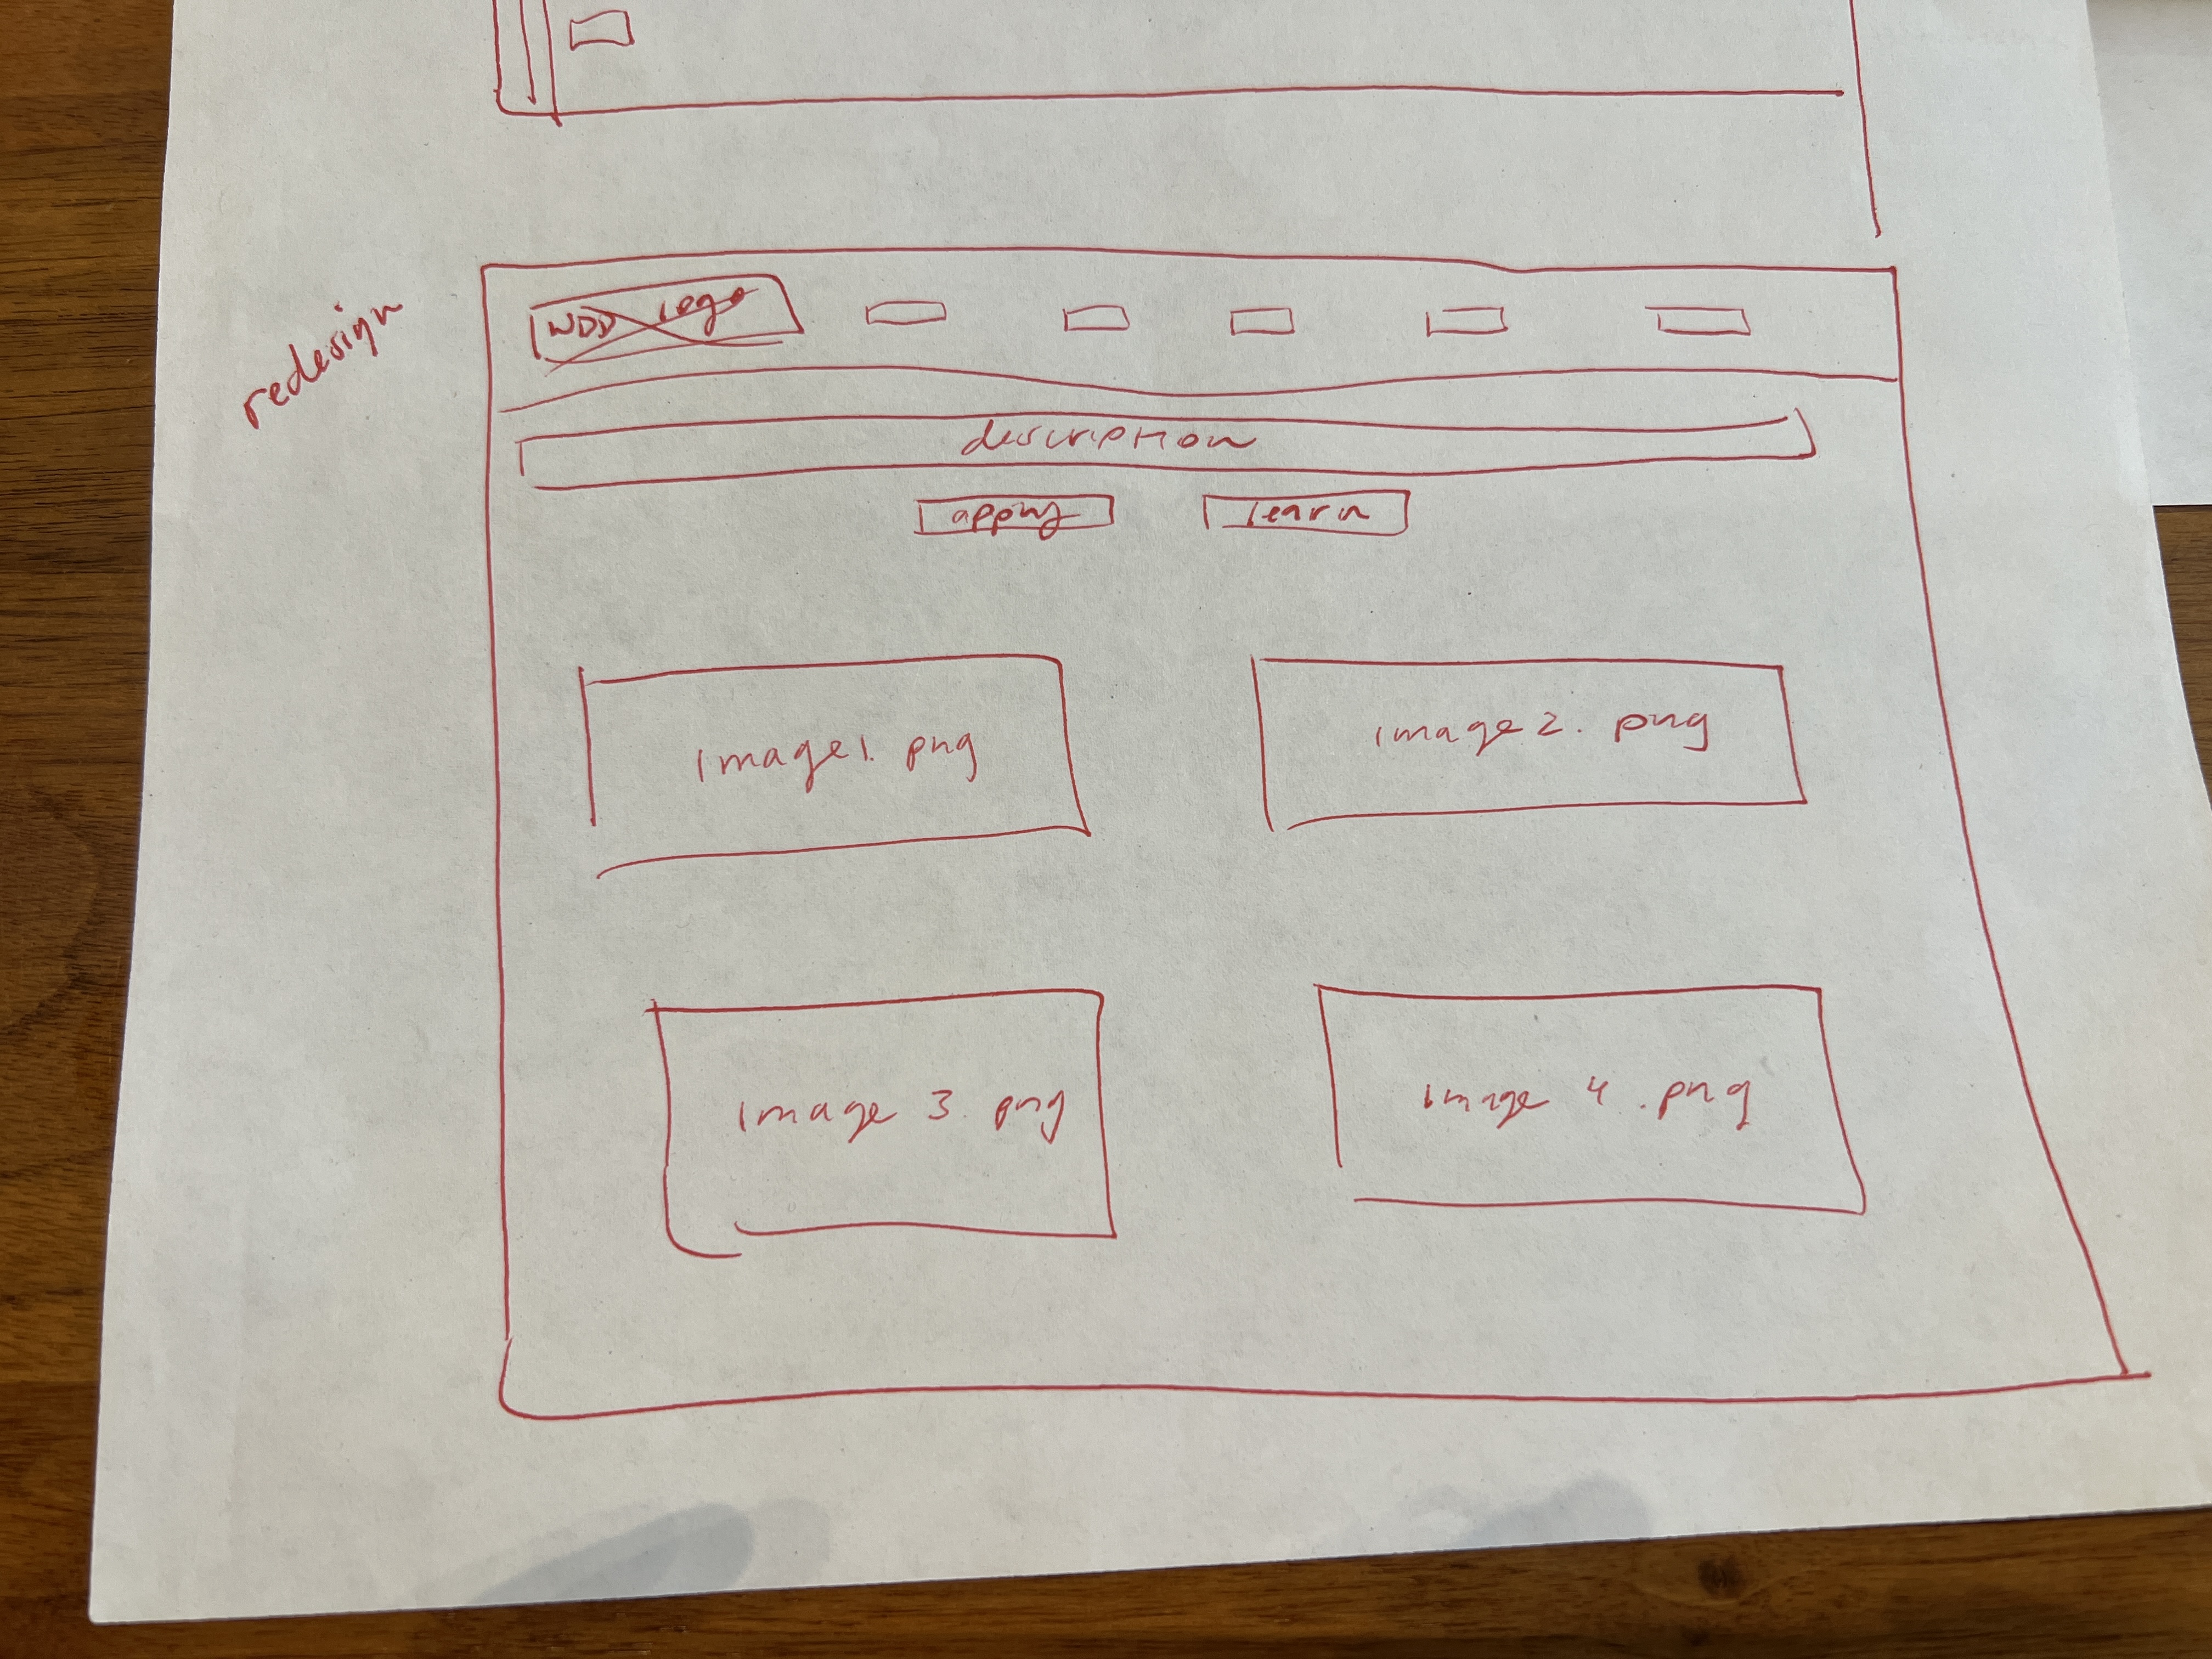 redesign
WDD logo
description
apply
learn
image1.png
image2.png
image 3.png
image 4.png